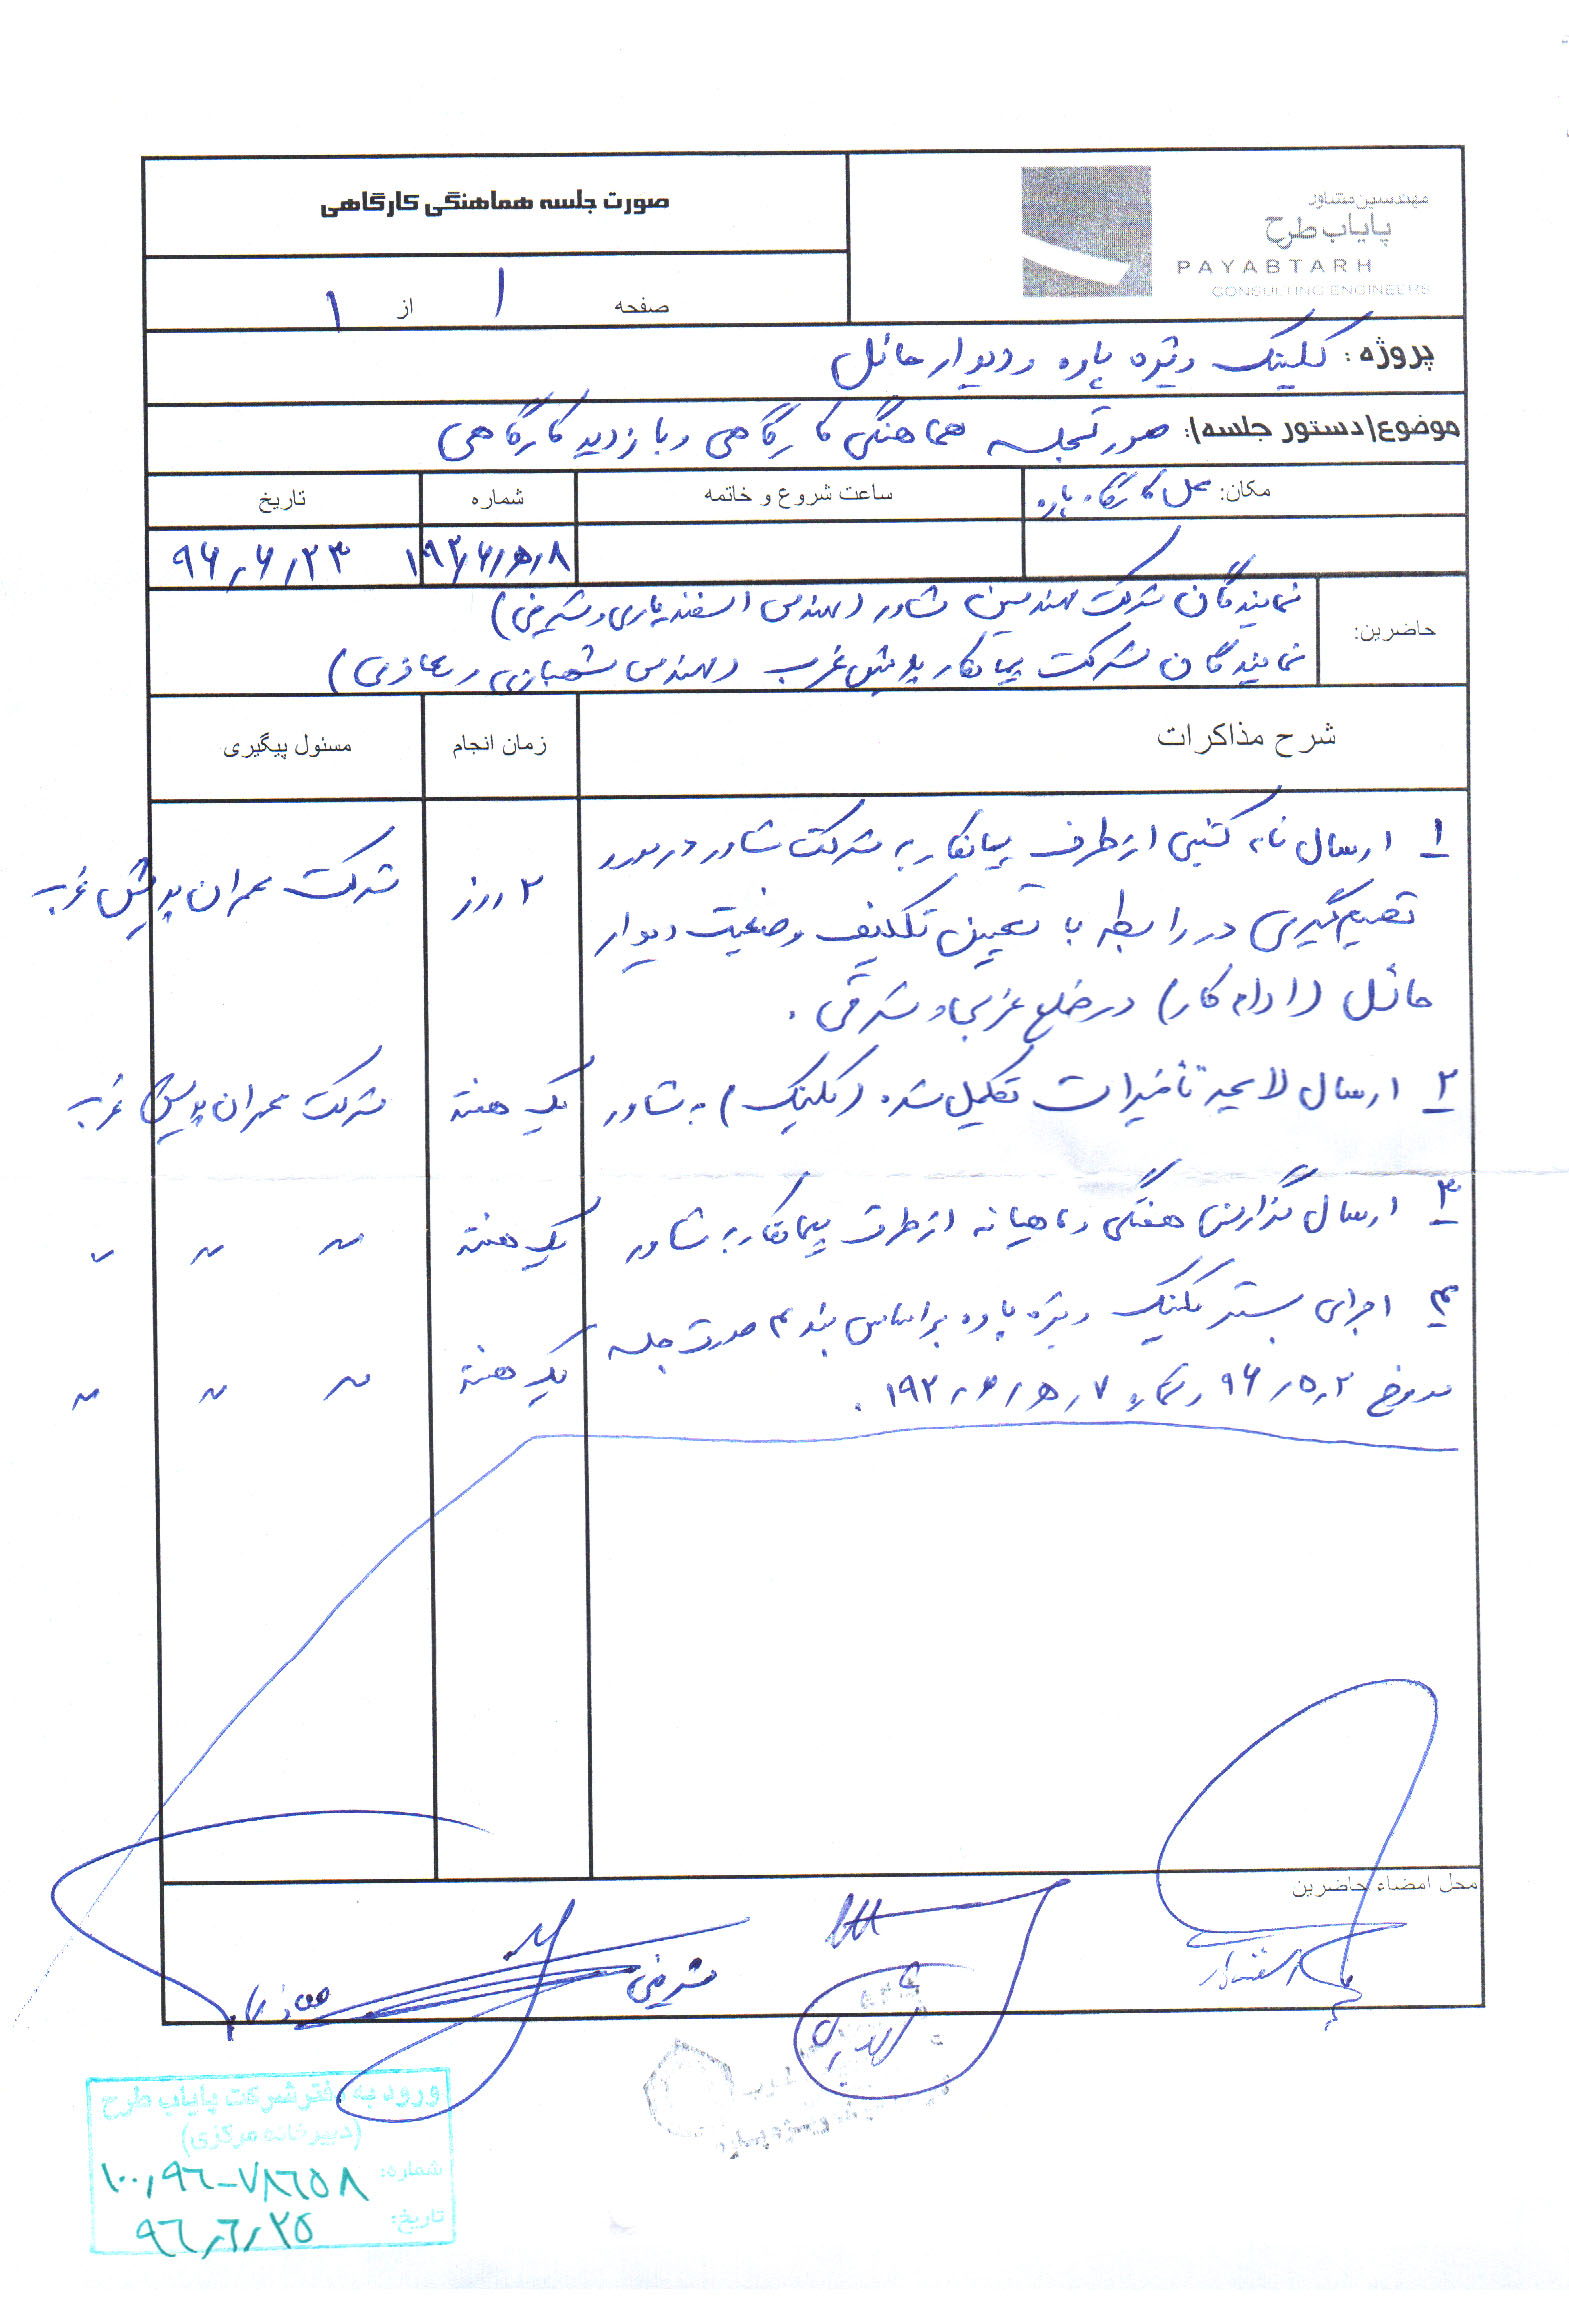 صورت جلسه هماهنگی کارگاهی
مهندسین مشاور
پایاب طرح
PAYABTARH
CONSULTING ENGINEERS
صفحه ۱ از ۱
پروژه: کلینیک ویژه پاوه و دیوار حائل
موضوع(دستور جلسه): صورتجلسه هماهنگی کارگاهی و بازدید کارگاهی
مکان: محل کارگاه پاوه
ساعت شروع و خاتمه
شماره
تاریخ
۹۶٫۶٫۲۳
حاضرین:
نمایندگان شرکت مهندسین مشاور (مهندس اسفندیاری و شریفی)
نمایندگان شرکت پیمانکار پویش غرب (مهندس شهبازی و معاذی)
شرح مذاکرات
زمان انجام
مسئول پیگیری
۱ ارسال نامه کتبی از طرف پیمانکار به شرکت مشاور در مورد
تصمیم‌گیری در رابطه با تعیین تکلیف وضعیت دیوار
حائل (ادامه کار) در ضلع غربی و شرقی .
۲ روز
شرکت عمران پویش غرب
۲ ارسال لایحه تأخیرات تکمیل شده (کلینیک) به مشاور
یک هفته
شرکت عمران پویش غرب
۳ ارسال گزارش هفتگی و ماهیانه از طرف پیمانکار به مشاور
یک هفته
〃 〃 〃
۴ اجرای بستر کلینیک ویژه پاوه بر اساس بند ۴ صورت جلسه
مورخ ۹۶٫۵٫۲ و شماره ۱۹۲٫۶٫۵٫۷ .
یک هفته
〃 〃 〃
محل امضاء حاضرین
شریفی
ورود به دفتر شرکت پایاب طرح
(دبیرخانه مرکزی)
شماره: ۱۰۰٫۹۶-۷۸۶۵۸
تاریخ: ۹۶٫۶٫۲۵